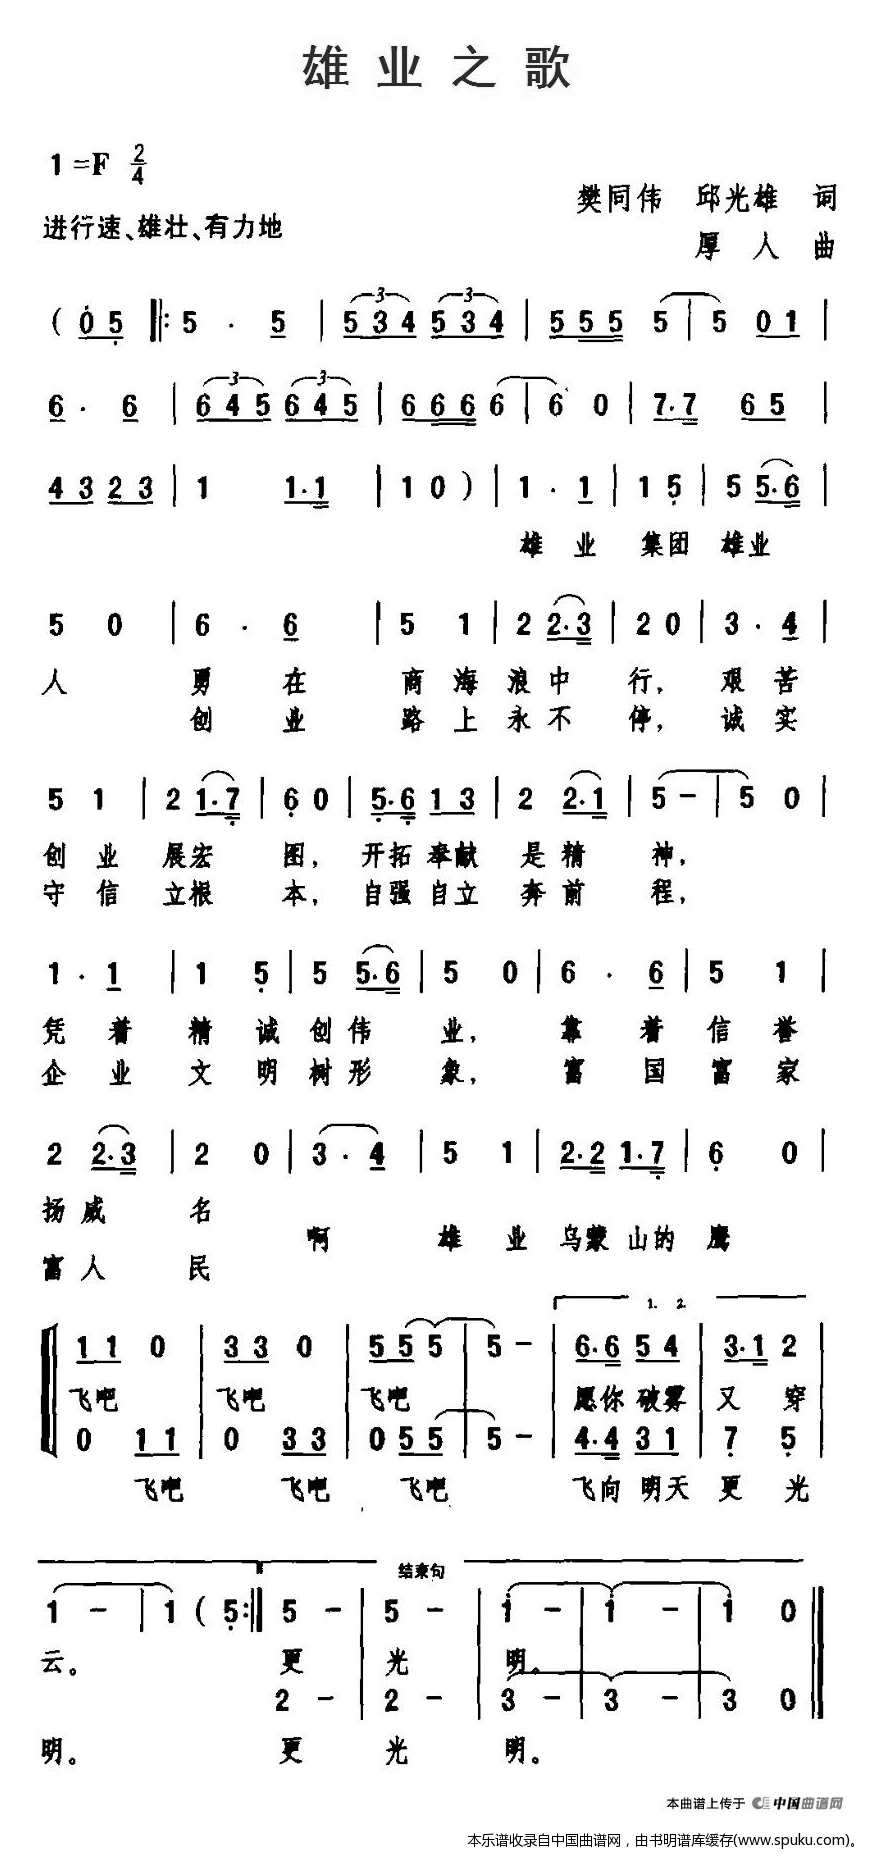 雄业之歌
1=F 2/4
樊同伟 邱光雄 词
进行速、雄壮、有力地
厚人 曲
( 0 5 |: 5 . 5 | 5 3 4 5 3 4 | 5 5 5 5 | 5 0 1 |
6 . 6 | 6 4 5 6 4 5 | 6 6 6 6 | 6 0 | 7 . 7 6 5 |
4 3 2 3 | 1 1 . 1 | 1 0 ) | 1 . 1 | 1 5 | 5 5 . 6 |
雄 业 集团 雄业
5 0 | 6 . 6 | 5 1 | 2 2 . 3 | 2 0 | 3 . 4 |
人 勇 在 商 海 浪 中 行, 艰 苦
创 业 路 上 永 不 停, 诚 实
5 1 | 2 1 . 7 | 6 0 | 5 . 6 1 3 | 2 2 . 1 | 5 - | 5 0 |
创 业 展宏 图, 开拓奉献 是精 神,
守 信 立根 本, 自强自立 奔前 程,
1 . 1 | 1 5 | 5 5 . 6 | 5 0 | 6 . 6 | 5 1 |
凭 着 精 诚 创 伟 业, 靠 着 信 誉
企 业 文 明 树 形 象, 富 国 富 家
2 2 . 3 | 2 0 | 3 . 4 | 5 1 | 2 . 2 1 . 7 | 6 0 |
扬 威 名
啊 雄 业 乌蒙 山的 鹰
富 人 民
1. 2.
1 1 0 | 3 3 0 | 5 5 5 | 5 - | 6 . 6 5 4 | 3 . 1 2 |
飞吧 飞吧 飞吧 愿你 破雾 又 穿
0 1 1 | 0 3 3 | 0 5 5 5 | 5 - | 4 . 4 3 1 | 7 5 |
飞吧 飞吧 飞吧 飞向 明天 更 光
结束句
1 - | 1 ( 5 :| 5 - | 5 - | 1 - | 1 - | 1 0 ||
云。 更 光 明。
2 - | 2 - | 3 - | 3 - | 3 0 ||
明。 更 光 明。
本曲谱上传于 中国曲谱网
本乐谱收录自中国曲谱网，由书明谱库缓存(www.spuku.com)。